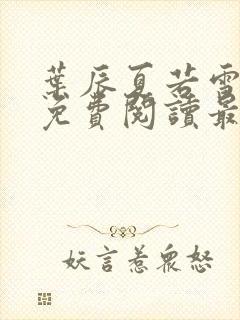 葉辰夏若雪
免費閱讀最
妖言惹衆怒